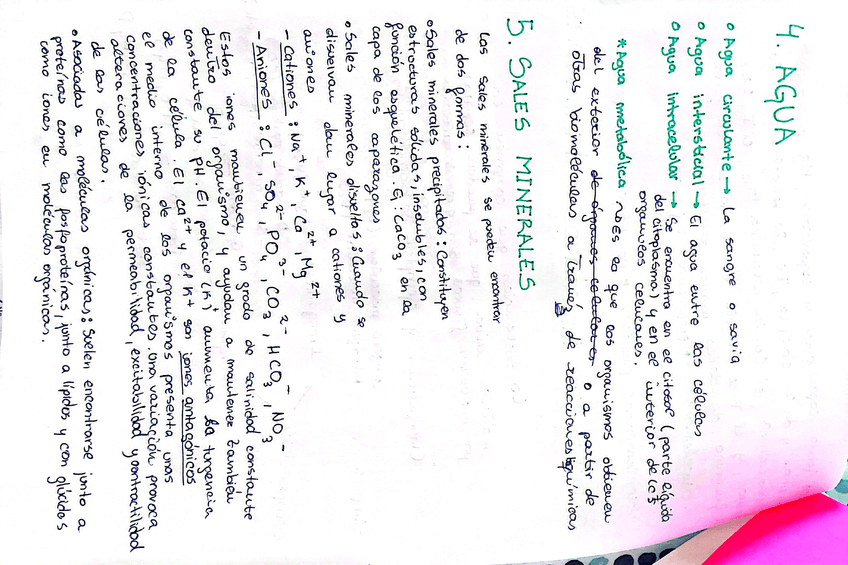 4. AGUA
o Agua circulante → La sangre o savia
o Agua intersticial → El agua entre las células
o Agua intracelular → Se encuentra en el citosol (parte líquida
del citoplasma) y en el interior de los
orgánulos celulares.
*Agua metabólica → Es la que los organismos obtienen
del exterior de órganos celulares o a partir de
otras biomoléculas a través de reacciones químicas
5. SALES MINERALES
Las sales minerales se pueden encontrar
de dos formas:
o Sales minerales precipitadas: Constituyen
estructuras sólidas, insolubles, con
función esquelética. Ej: CaCO3 en la
capa de los caparazones
o Sales minerales disueltas: Cuando se
disuelvan dan lugar a cationes y
aniones
- Cationes: Na+, K+, Ca2+, Mg2+
- Aniones: Cl-, SO4 2-, PO4 3-, CO3 2-, HCO3-, NO3-
Estos iones mantienen un grado de salinidad constante
dentro del organismo, y ayudan a mantener también
constante su pH. El potasio (K+) aumenta la turgencia
de la célula. El Ca2+ y el K+ son iones antagónicos
el medio interno de los organismos presenta unas
concentraciones iónicas constantes. Una variación provoca
alteraciones de la permeabilidad, excitabilidad y contractilidad
de las células.
o Asociadas a moléculas orgánicas: Suelen encontrarse junto a
proteínas como las fosfoproteínas, junto a lípidos y con glúcidos
como iones en moléculas orgánicas.